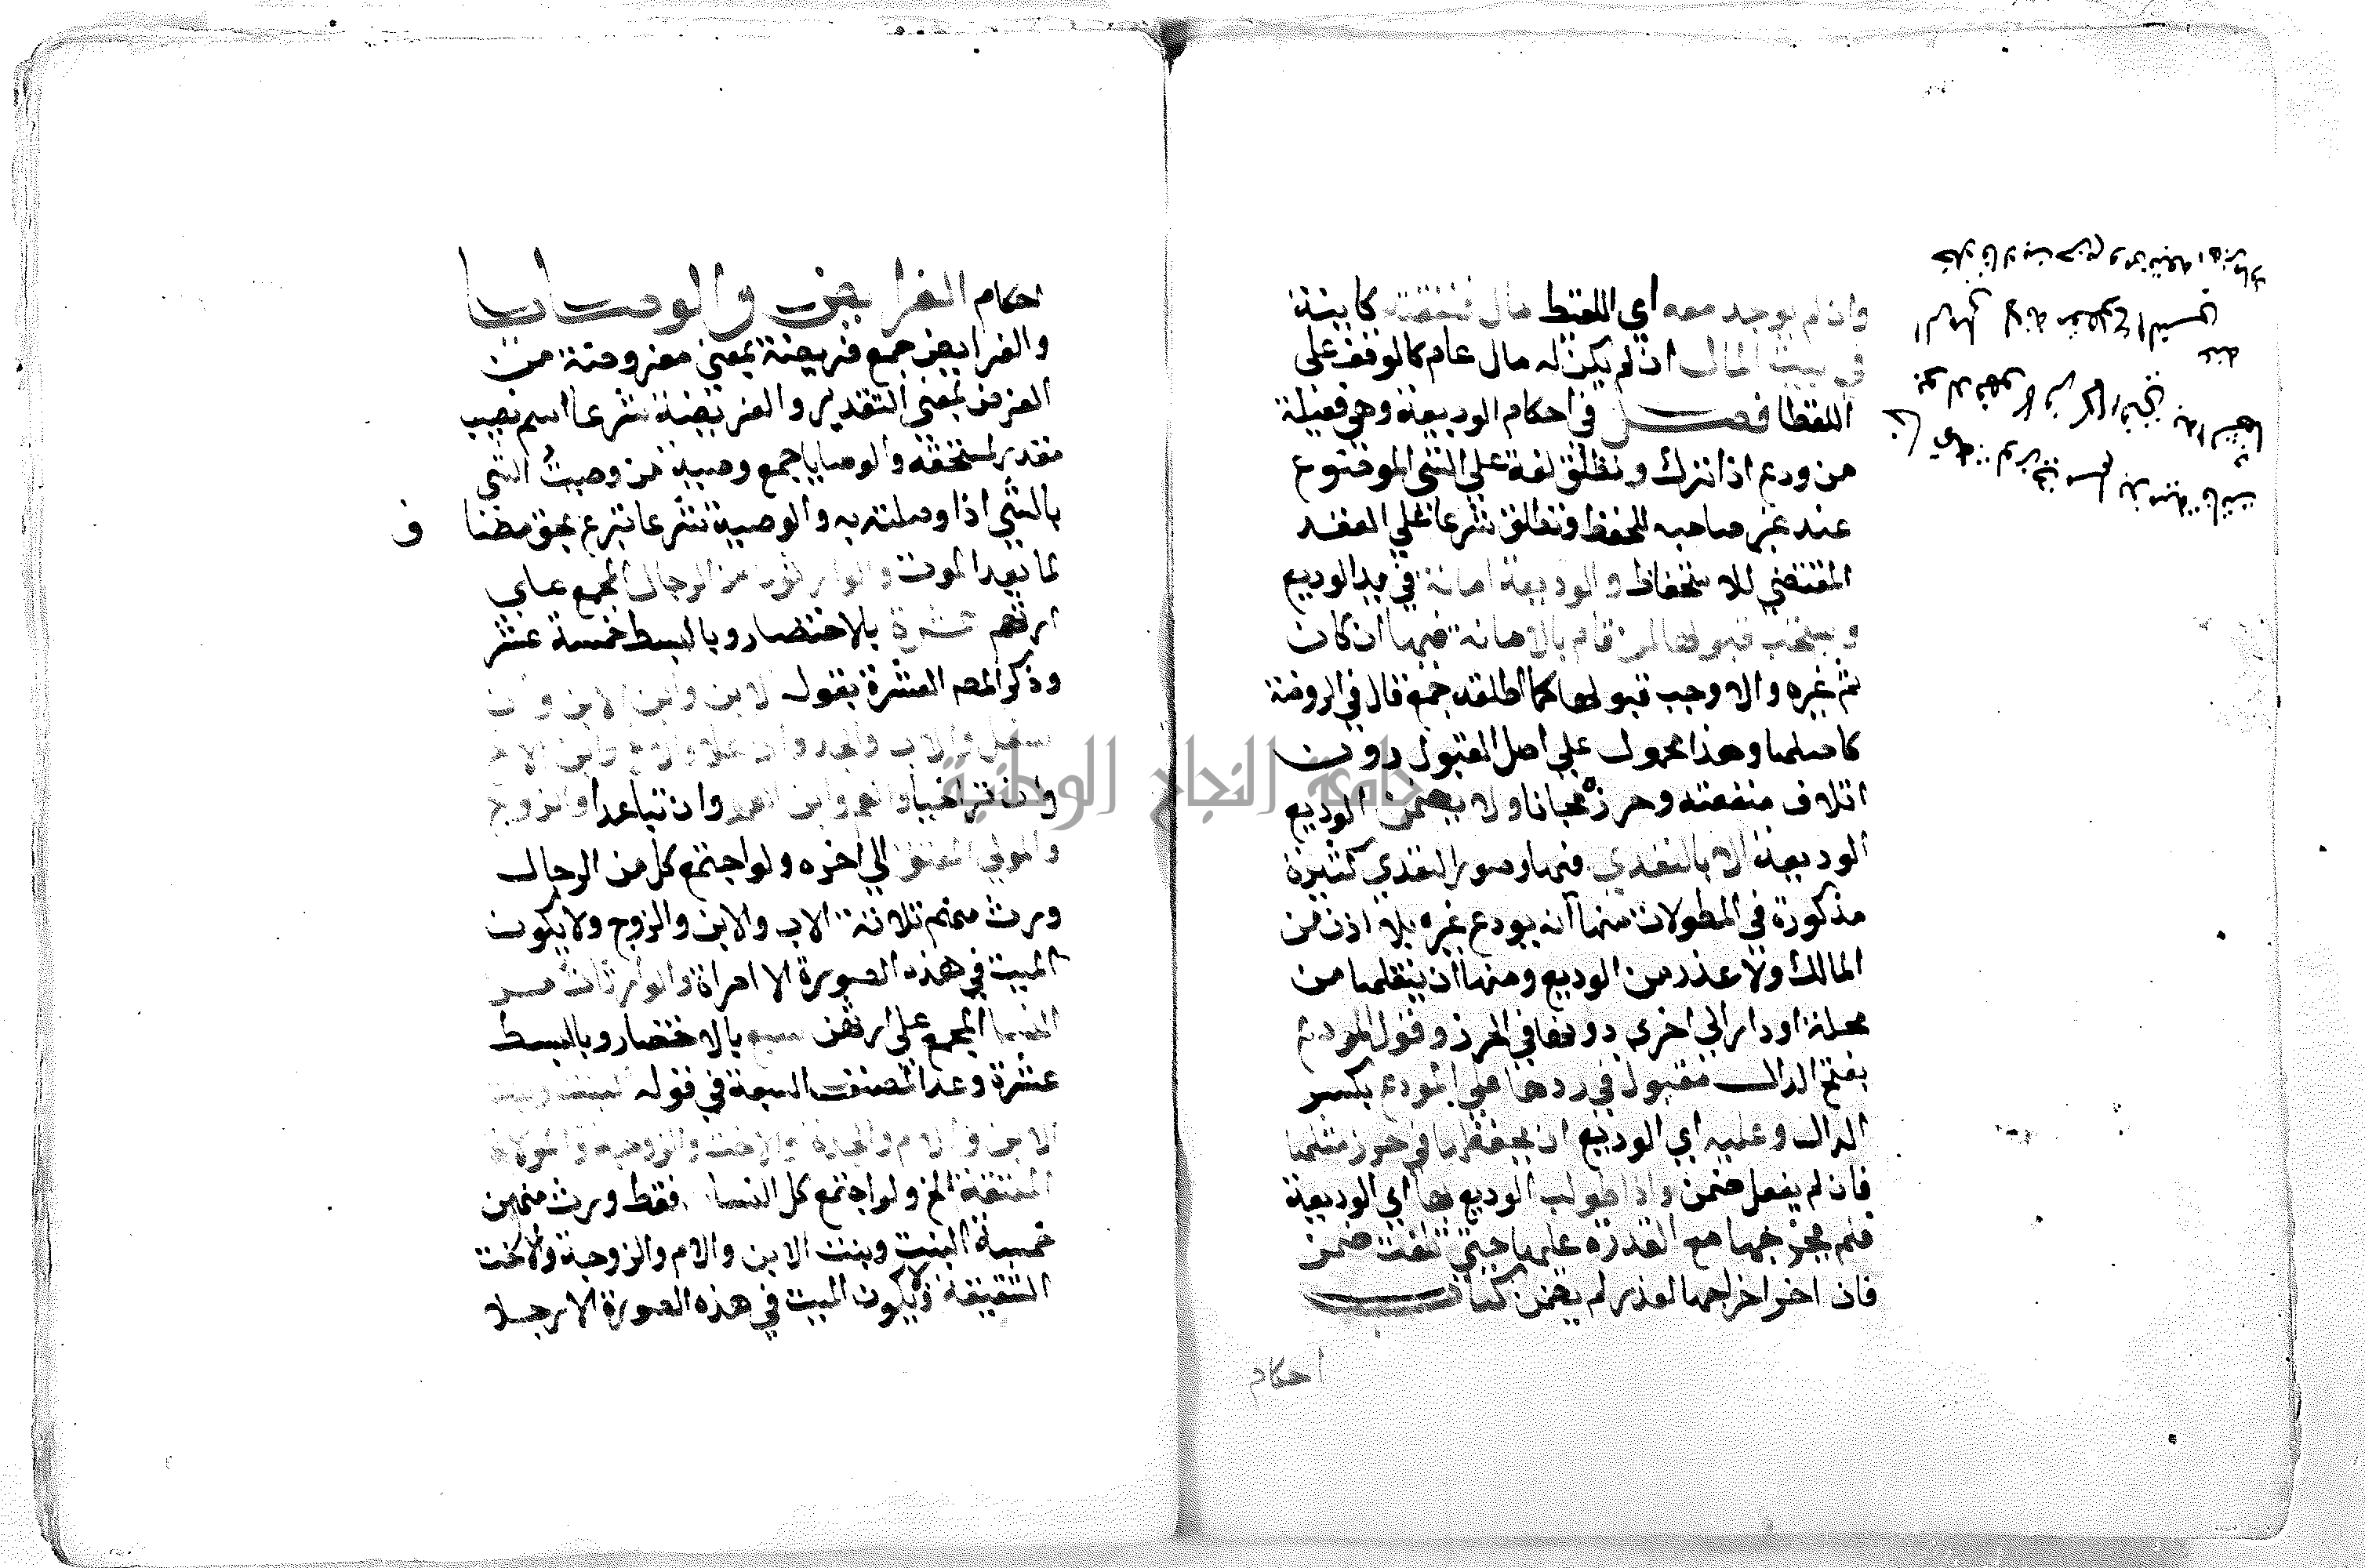 وان لم يوجد معه اي اللقيط مال فنفقته كاينة
في بيت المال ان لم يكن له مال عام كالوقف على
اللقطا فصل في احكام الوديعة وهي فعيلة
من ودع اذا ترك وتطلق لغة على الشي الموضوع
عند غير صاحبه للحفظ وتطلق شرعا على العقد
المقتضي للاستحفاظ والوديعة امانة في يد الوديع
ويستحب قبولها لمن قام بالامانة فيها ان كان
ثم غيره والا وجب قبولها كما اطلقه جمع قال في الروضة
كاصلها وهذا محمول على اصل القبول دون
اتلاف منفعته وحرزه مجانا ولا يضمن الوديع
الوديعة الا بالتعدي فيها وصور التعدي كثيرة
مذكورة في المطولات منها ان يودع غيره بلا اذن من
المالك ولا عذر من الوديع ومنها ان ينقلها من
محلة او دار الى اخرى دونها في الحرز وقول المودع
بفتح الدال مقبول في ردها على المودع بكسر
الدال وعليه اي الوديع ان يحفظها في حرز مثلها
فان لم يفعل ضمن واذا طولب الوديع بها اي الوديعة
فلم يخرجها مع القدرة عليها حتى تلفت ضمن
فان اخر اخراجها لعذر لم يضمن كتاب
احكام
احكام الفرايض والوصايا
والفرايض جمع فريضة بمعنى مفروضة من
الفرض بمعنى التقدير والفريضة شرعا اسم نصيب
مقدر لمستحقه والوصايا جمع وصية من وصيت الشي
بالشي اذا وصلته به والوصية شرعا تبرع بحق مضا
ف
لما بعد الموت والوارثون من الرجال المجمع على
ارثهم عشرة بالاختصار وبالبسط خمسة عشر
وذكر المصـ العشرة بقوله الابن وابن الابن وان
سفل والاب والجد وان علا والاخ وابن الاخ
وان تراخيا والعم وابن العم وان تباعدا والزوج
والمولى المعتق الى اخره ولو اجتمع كل من الرجال
ورث منهم ثلاثة الاب والابن والزوج ولا يكون
الميت في هذه الصورة الا امراة والوارثات من
النسا المجمع على ارثهن سبع بالاختصار وبالبسط
عشرة وعد المصنف السبعة في قوله البنت وبنت
الابن والام والجدة والاخت والزوجة والمولاة
المعتقة الخ ولو اجتمع كل النسا فقط ورث منهن
خمسة البنت وبنت الابن والام والزوجة والاخت
الشقيقة ولا يكون الميت في هذه الصورة الا رجلا
جامعة النجاح الوطنية